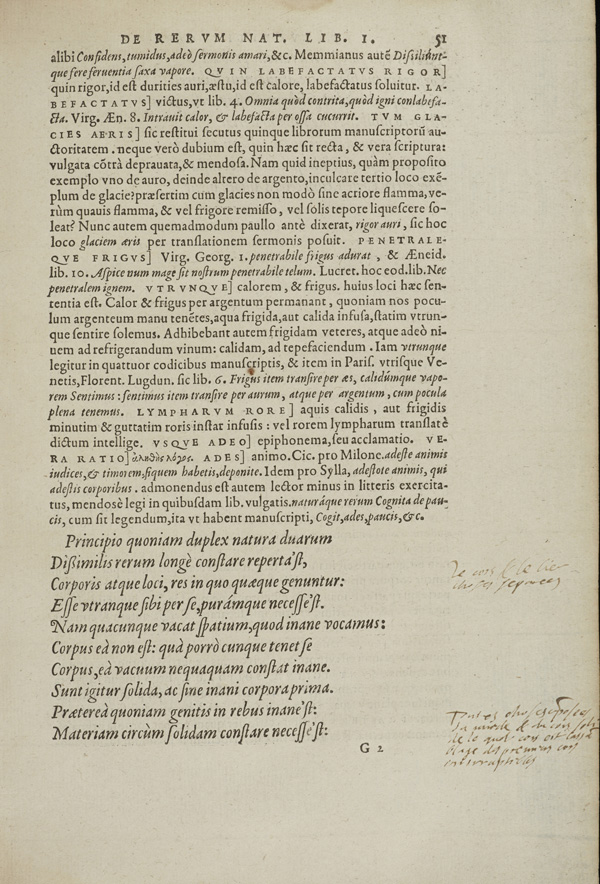 DE RERVM NAT. LIB. I. 51
alibi Confidens, tumidus, adeò sermonis amari, &c. Memmianus autē Dissiliúnt-
que fere feruentia saxa vapore. QVIN LABEFACTATVS RIGOR]
quin rigor, id est durities auri, æstu, id est calore, labefactatus soluitur. LA-
BEFACTATVS] victus, vt lib. 4. Omnia quòd contrita, quòd igni conlabefa-
cta. Virg. Æn. 8. Intrauit calor, & labefacta per ossa cucurrit. TVM GLA-
CIES AERIS] sic restitui secutus quinque librorum manuscriptorū au-
ctoritatem. neque verò dubium est, quin hæc sit recta, & vera scriptura:
vulgata cōtrà deprauata, & mendosa. Nam quid ineptius, quàm proposito
exemplo vno de auro, deinde altero de argento, inculcare tertio loco exē-
plum de glacie? præsertim cum glacies non modò sine acriore flamma, ve-
rùm quauis flamma, & vel frigore remisso, vel solis tepore liquescere so-
leat? Nunc autem quemadmodum paullo antè dixerat, rigor auri, sic hoc
loco glaciem æris per translationem sermonis posuit. PENETRALE-
QVE FRIGVS] Virg. Georg. 1. penetrabile frigus adurat, & Æneid.
lib. 10. Aspice num mage sit nostrum penetrabile telum. Lucret. hoc eod. lib. Nec
penetralem ignem. VTRVNQVE] calorem, & frigus. huius loci hæc sen-
tentia est. Calor & frigus per argentum permanant, quoniam nos pocu-
lum argenteum manu tenētes, aqua frigida, aut calida infusa, statim vtrun-
que sentire solemus. Adhibebant autem frigidam veteres, atque adeò ni-
uem ad refrigerandum vinum: calidam, ad tepefaciendum. Iam vtrunque
legitur in quattuor codicibus manuscriptis, & item in Paris. vtrisque Ve-
netis, Florent. Lugdun. sic lib. 6. Frigus item transire per æs, calidúmque vapo-
rem Sentimus: sentimus item transire per aurum, atque per argentum, cum pocula
plena tenemus. LYMPHARVM RORE] aquis calidis, aut frigidis
minutim & guttatim roris instar infusis: vel rorem lympharum translatè
dictum intellige. VSQVE ADEO] epiphonema, seu acclamatio. VE-
RA RATIO] ἀληθὴς λόγος. ADES] animo. Cic. pro Milone. adeste animis
iudices, & timorem, siquem habetis, deponite. Idem pro Sylla, adestote animis, qui
adestis corporibus. admonendus est autem lector minus in litteris exercita-
tus, mendosè legi in quibusdam lib. vulgatis. naturáque rerum Cognita de pau-
cis, cum sit legendum, ita vt habent manuscripti, Cogit, ades, paucis, &c.
Principio quoniam duplex natura duarum
Dissimilis rerum longè constare reperta'st,
Corporis atque loci, res in quo quæque genuntur:
Esse vtranque sibi per se, purámque necesse'st.
Nam quacunque vacat spatium, quod inane vocamus:
Corpus eà non est: quà porrò cunque tenet se
Corpus, eà vacuum nequaquam constat inane.
Sunt igitur solida, ac sine inani corpora prima.
Præterea quoniam genitis in rebus inane'st:
Materiam circùm solidam constare necesse'st:
G 2
Le cors & le lieu